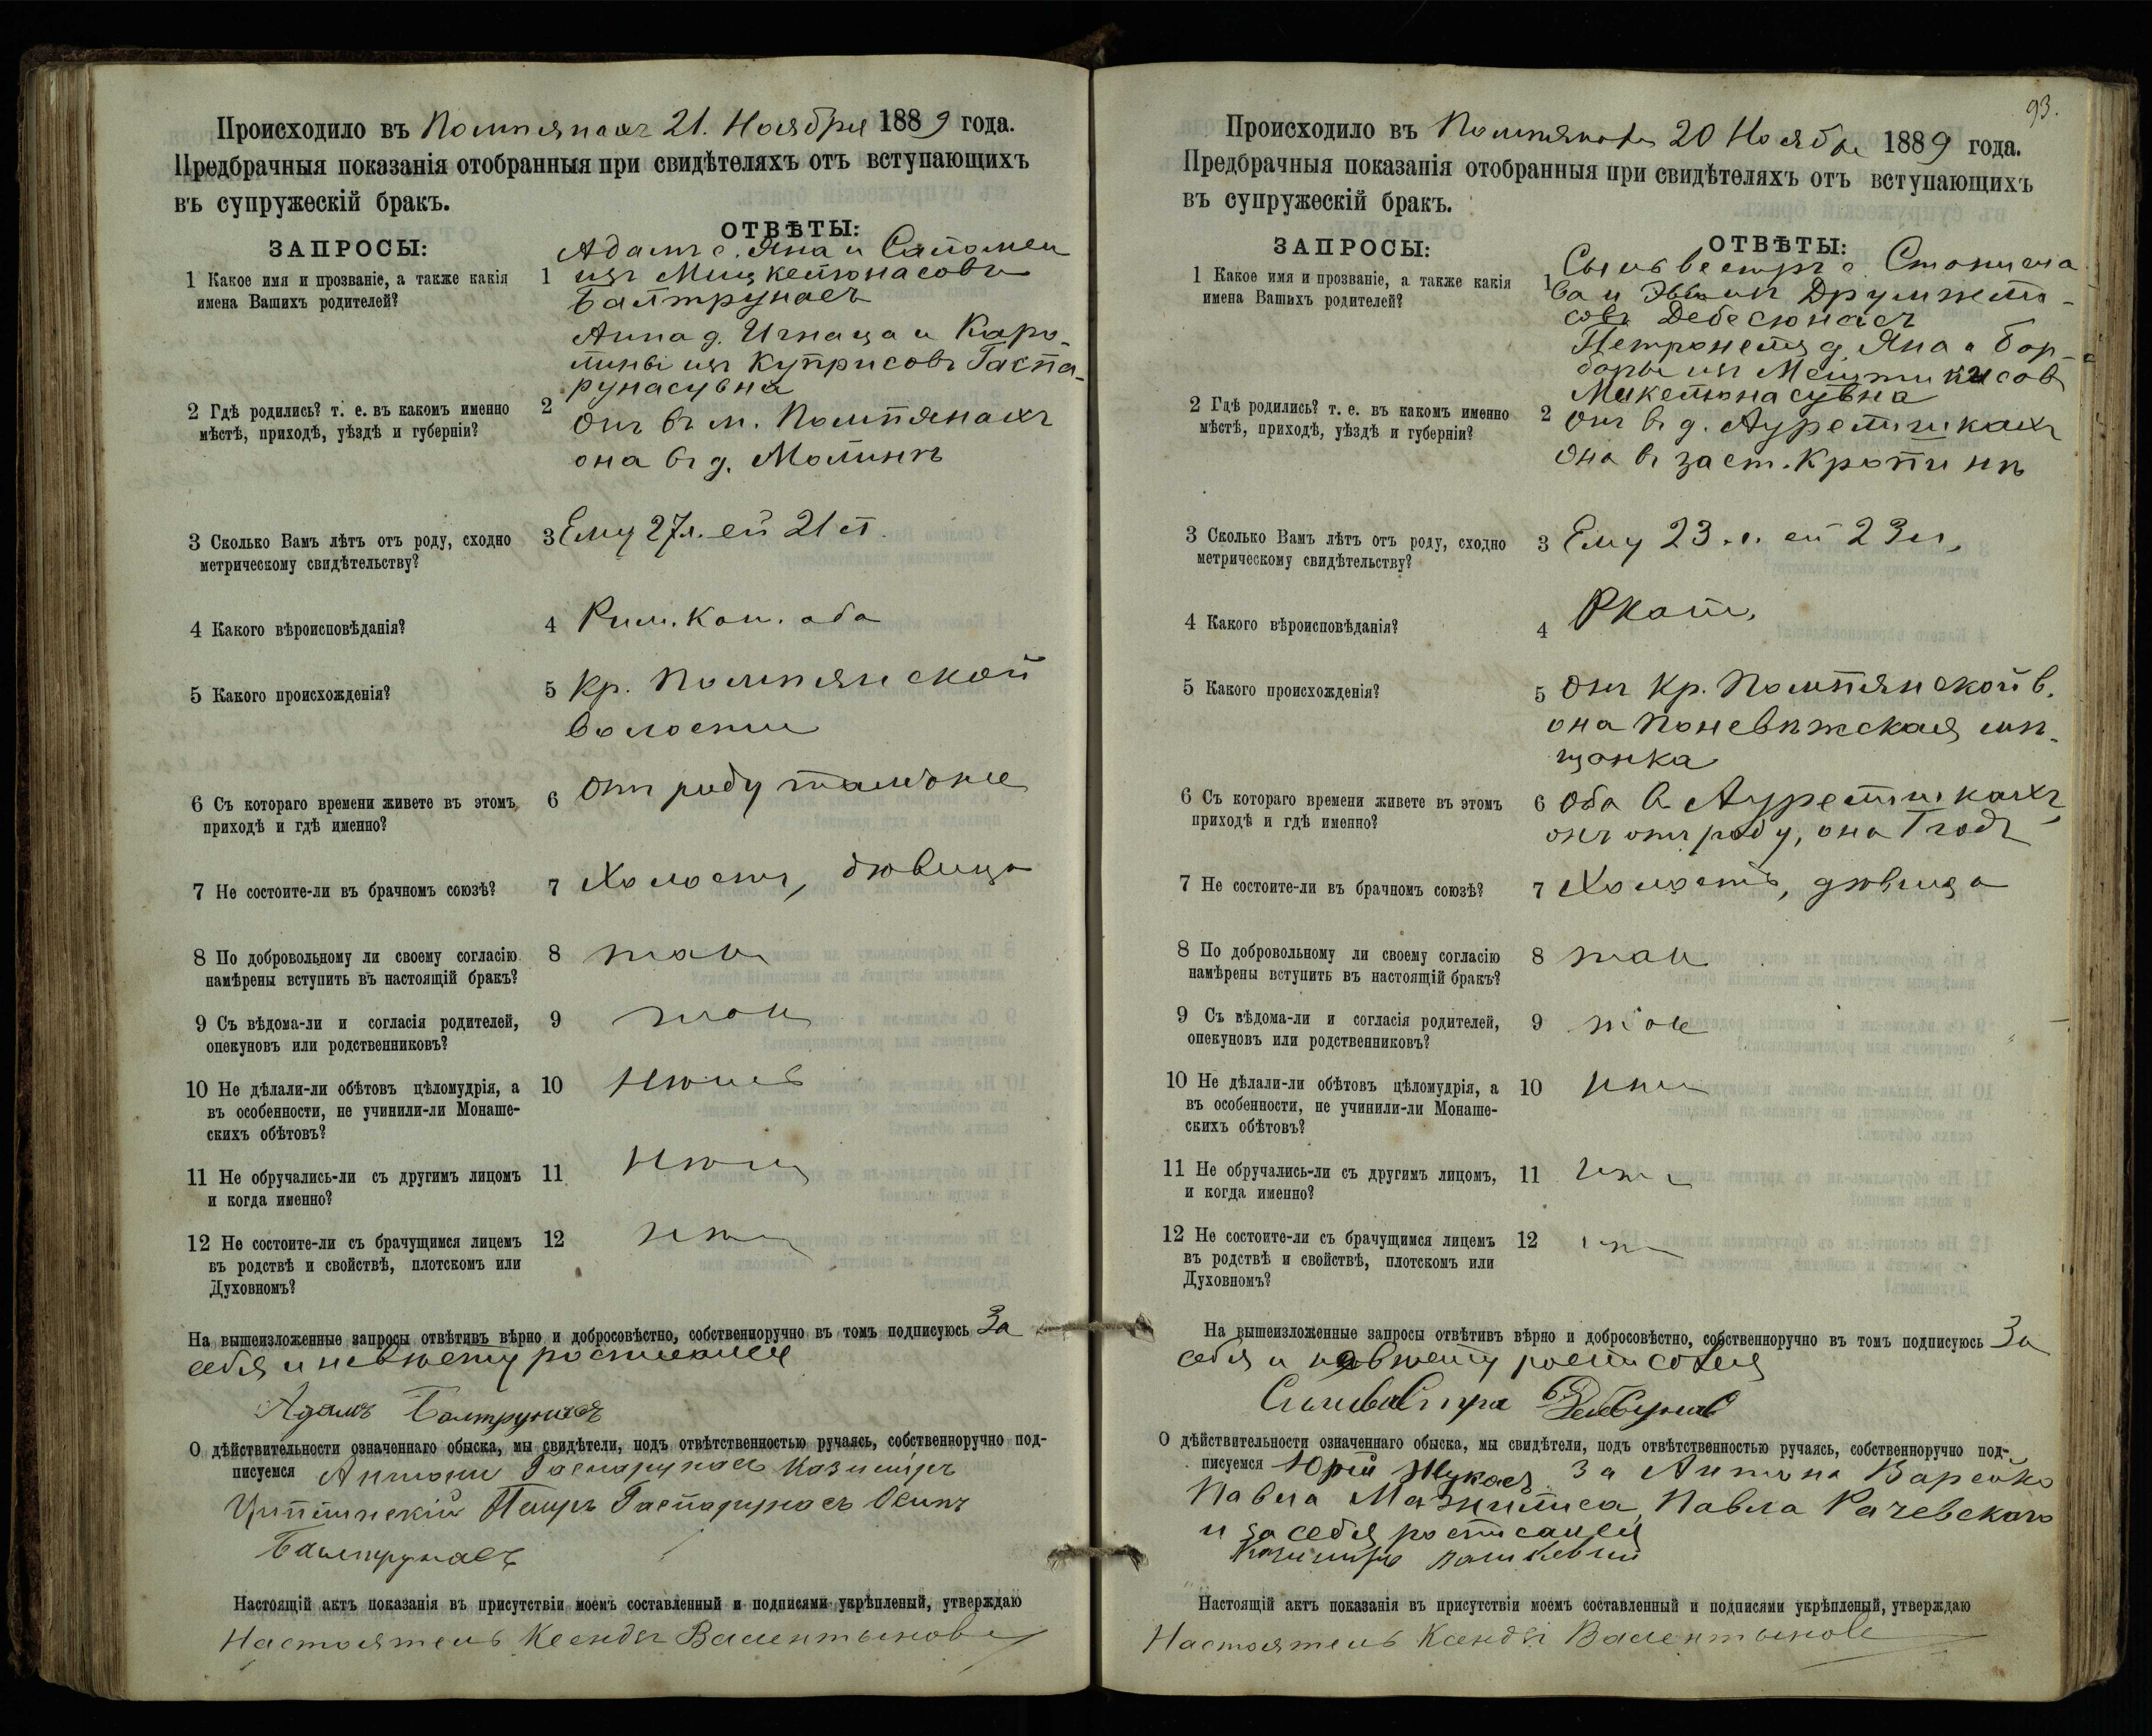 Происходило въ Помпянахъ 21. Ноября 1889 года.
Предбрачныя показанія отобранныя при свидѣтеляхъ отъ вступающихъ
въ супружескій бракъ.
ЗАПРОСЫ:
ОТВѢТЫ:
1 Какое имя и прозваніе, а также какія
имена Вашихъ родителей?
1 Адамъ с. Яна и Саломеи
изъ Мицкелюнасовъ
Балтрунасъ
Анна д. Игнаца и Каро-
лины изъ Куприсовъ Гаспа-
рунасувна
2 Гдѣ родились? т. е. въ какомъ именно
мѣстѣ, приходѣ, уѣздѣ и губерніи?
2 Онъ въ м. Помпянахъ
она въ д. Молинѣ
3 Сколько Вамъ лѣтъ отъ роду, сходно
метрическому свидѣтельству?
3 Ему 27 л. ей 21 л.
4 Какого вѣроисповѣданія?
4 Рим. Кат. оба
5 Какого происхожденія?
5 Кр. Помпянской
волости
6 Съ котораго времени живете въ этомъ
приходѣ и гдѣ именно?
6 Отъ роду тамъ же
7 Не состоите-ли въ брачномъ союзѣ?
7 Холостъ, дѣвица
8 По добровольному ли своему согласію
намѣрены вступить въ настоящій бракъ?
8 такъ
9 Съ вѣдома-ли и согласія родителей,
опекуновъ или родственниковъ?
9 такъ
10 Не дѣлали-ли обѣтовъ цѣломудрія, а
въ особенности, не учинили-ли Монаше-
скихъ обѣтовъ?
10 нѣтъ
11 Не обручались-ли съ другимъ лицомъ
и когда именно?
11 нѣтъ
12 Не состоите-ли съ брачущимся лицемъ
въ родствѣ и свойствѣ, плотскомъ или
Духовномъ?
12 нѣтъ
На вышеизложенные запросы отвѣтивъ вѣрно и добросовѣстно, собственноручно въ томъ подписуюсь За
себя и невѣсту росписался
Адамъ Балтрунасъ
О дѣйствительности означеннаго обыска, мы свидѣтели, подъ отвѣтственностью ручаясь, собственноручно под-
писуемся Антони Гаспарунасъ Казимiръ
Петръ Гаспарунасъ Осипъ
Балтрунасъ
Настоящій актъ показанія въ присутствіи моемъ составленный и подписями укрѣпленый, утверждаю
Настоятель Ксендзъ Валентыновъ
93.
Происходило въ Помпянахъ 20 Ноября 1889 года.
Предбрачныя показанія отобранныя при свидѣтеляхъ отъ вступающихъ
въ супружескій бракъ.
ЗАПРОСЫ:
ОТВѢТЫ:
1 Какое имя и прозваніе, а также какія
имена Вашихъ родителей?
1 Сыльвестръ с. Станисла
ва и Эвы изъ Друлжели-
совъ Дебесюнасъ
Петронеля д. Яна и Бар-
бары изъ
Микелюнасувна
2 Гдѣ родились? т. е. въ какомъ именно
мѣстѣ, приходѣ, уѣздѣ и губерніи?
2 Онъ въ д. Аурелишкахъ
Она въ заст. Кропинѣ
3 Сколько Вамъ лѣтъ отъ роду, сходно
метрическому свидѣтельству?
3 Ему 23 л. ей 23 л.
4 Какого вѣроисповѣданія?
4 РКат.
5 Какого происхожденія?
5 Онъ Кр. Помпянской в.
она Поневѣжская мѣ-
щанка
6 Съ котораго времени живете въ этомъ
приходѣ и гдѣ именно?
6 Оба въ Аурелишкахъ,
онъ отъ роду, она 1 годъ
7 Не состоите-ли въ брачномъ союзѣ?
7 Холостъ, дѣвица
8 По добровольному ли своему согласію
намѣрены вступить въ настоящій бракъ?
8 такъ
9 Съ вѣдома-ли и согласія родителей,
опекуновъ или родственниковъ?
9 такъ
10 Не дѣлали-ли обѣтовъ цѣломудрія, а
въ особенности, не учинили-ли Монаше-
скихъ обѣтовъ?
10 нѣтъ
11 Не обручались-ли съ другимъ лицомъ,
и когда именно?
11 нѣтъ
12 Не состоите-ли съ брачущимся лицемъ
въ родствѣ и свойствѣ, плотскомъ или
Духовномъ?
12 нѣтъ
На вышеизложенные запросы отвѣтивъ вѣрно и добросовѣстно, собственноручно въ томъ подписуюсь За
себя и невѣсту росписался
О дѣйствительности означеннаго обыска, мы свидѣтели, подъ отвѣтственностью ручаясь, собственноручно под-
писуемся Юрій Жукасъ За Антона Варейко
Павла Мажилиса, Павла Рачевскаго
и за себя росписался
Казимиръ Пашкевичъ
Настоящій актъ показанія въ присутствіи моемъ составленный и подписями укрѣпленый, утверждаю
Настоятель Ксендзъ Валентыновъ